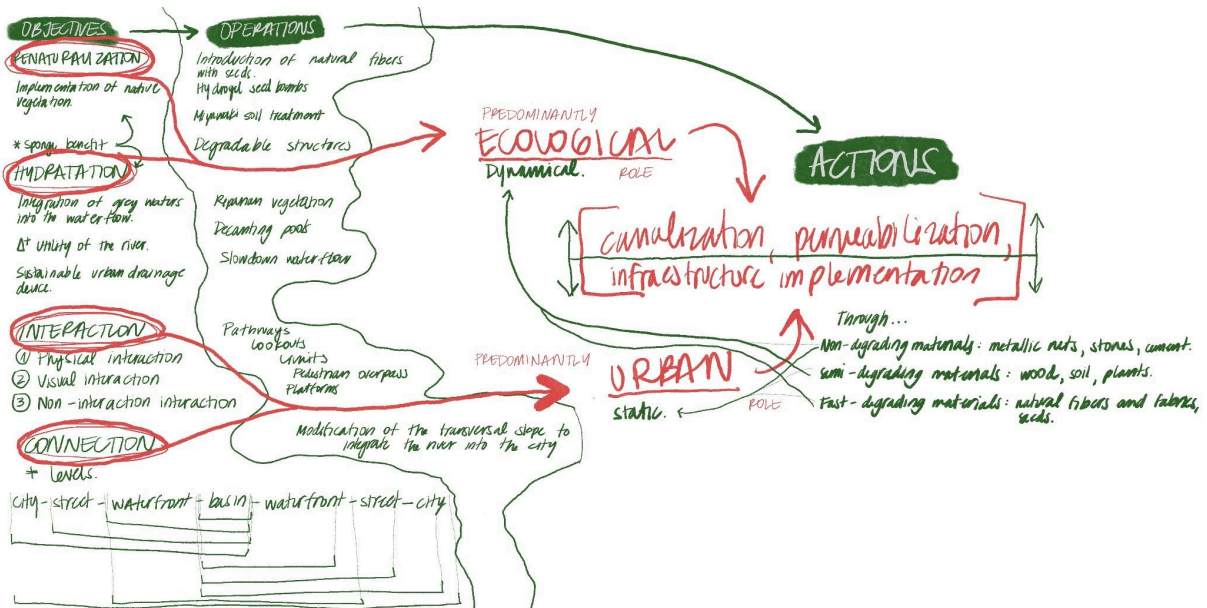 OBJECTIVES
RENATURALIZATION
Implementation of native
vegetation.
* sponge benefit
HYDRATATION
Integration of grey waters
into the waterflow.
Δ+ utility of the river.
Sustainable urban drainage
device.
INTERACTION
① Physical interaction
② Visual interaction
③ Non-interaction interaction
CONNECTION
+ levels.
city - street - waterfront - basin - waterfront - street - city
OPERATIONS
Introduction of natural fibers
with seeds.
Hydrogel seed bombs
Miyawaki soil treatment
Degradable structures
Riparian vegetation
Decanting pools
Slowdown waterflow
Pathways
Lookouts
Pedestrian overpass
Platforms
Modification of the transversal slope to
integrate the river into the city
PREDOMINANTLY
ECOLOGICAL
Dynamical.
ROLE
PREDOMINANTLY
URBAN
static.
ROLE
ACTIONS
canalization, permeabilization,
infraestructure implementation
Through...
Non-degrading materials: metallic nets, stones, cement.
Semi-degrading materials: wood, soil, plants.
Fast-degrading materials: natural fibers and fabrics,
seeds.